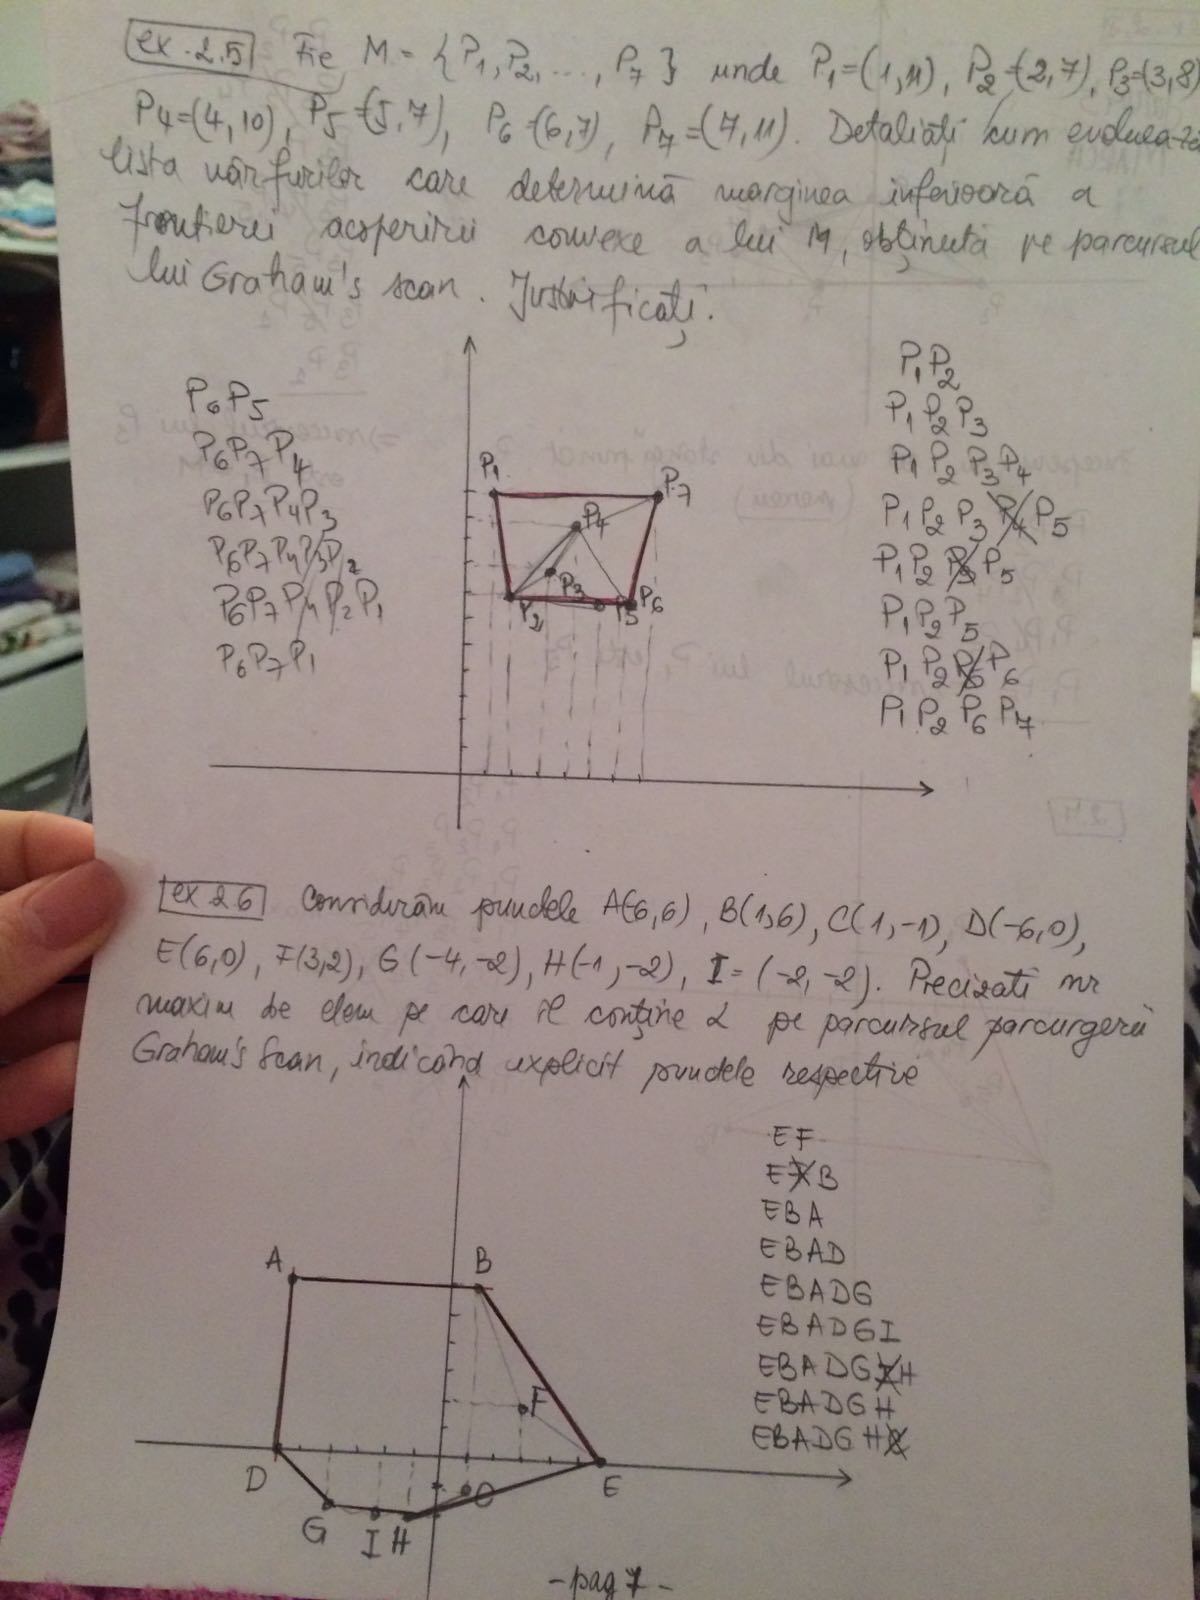 ex. 2.5 Fie M = {P1, P2, ..., P7} unde P1=(1,11), P2=(2,7), P3=(3,8)
P4=(4,10), P5=(5,7), P6=(6,7), P7=(7,11). Detaliați cum evoluează
lista vârfurilor care determină marginea inferioară a
frontierei acoperirii convexe a lui M, obținută pe parcursul
lui Graham's scan. Justificați.
P6P5
P6P7P4
P6P7P4P3
P6P7P4P3P2
P6P7P4P2P1
P6P7P1
P1
P7
P4
P3
P2
P5
P6
P1P2
P1P2P3
P1P2P3P4
P1P2P3P4P5
P1P2P3P5
P1P2P5
P1P2P5P6
P1P2P6P7
ex 2.6 Considerăm punctele A(-6,6), B(1,6), C(1,-1), D(-6,0),
E(6,0), F(3,2), G(-4,-2), H(-1,-2), I=(-2,-2). Precizati nr
maxim de elem pe care il conține L pe parcursul parcurgerii
Graham's Scan, indicând explicit punctele respective
EF
EFB
EBA
EBAD
EBADG
EBADGI
EBADGIH
EBADGH
EBADGHC
A
B
F
D
C
E
G
I
H
-pag 7-